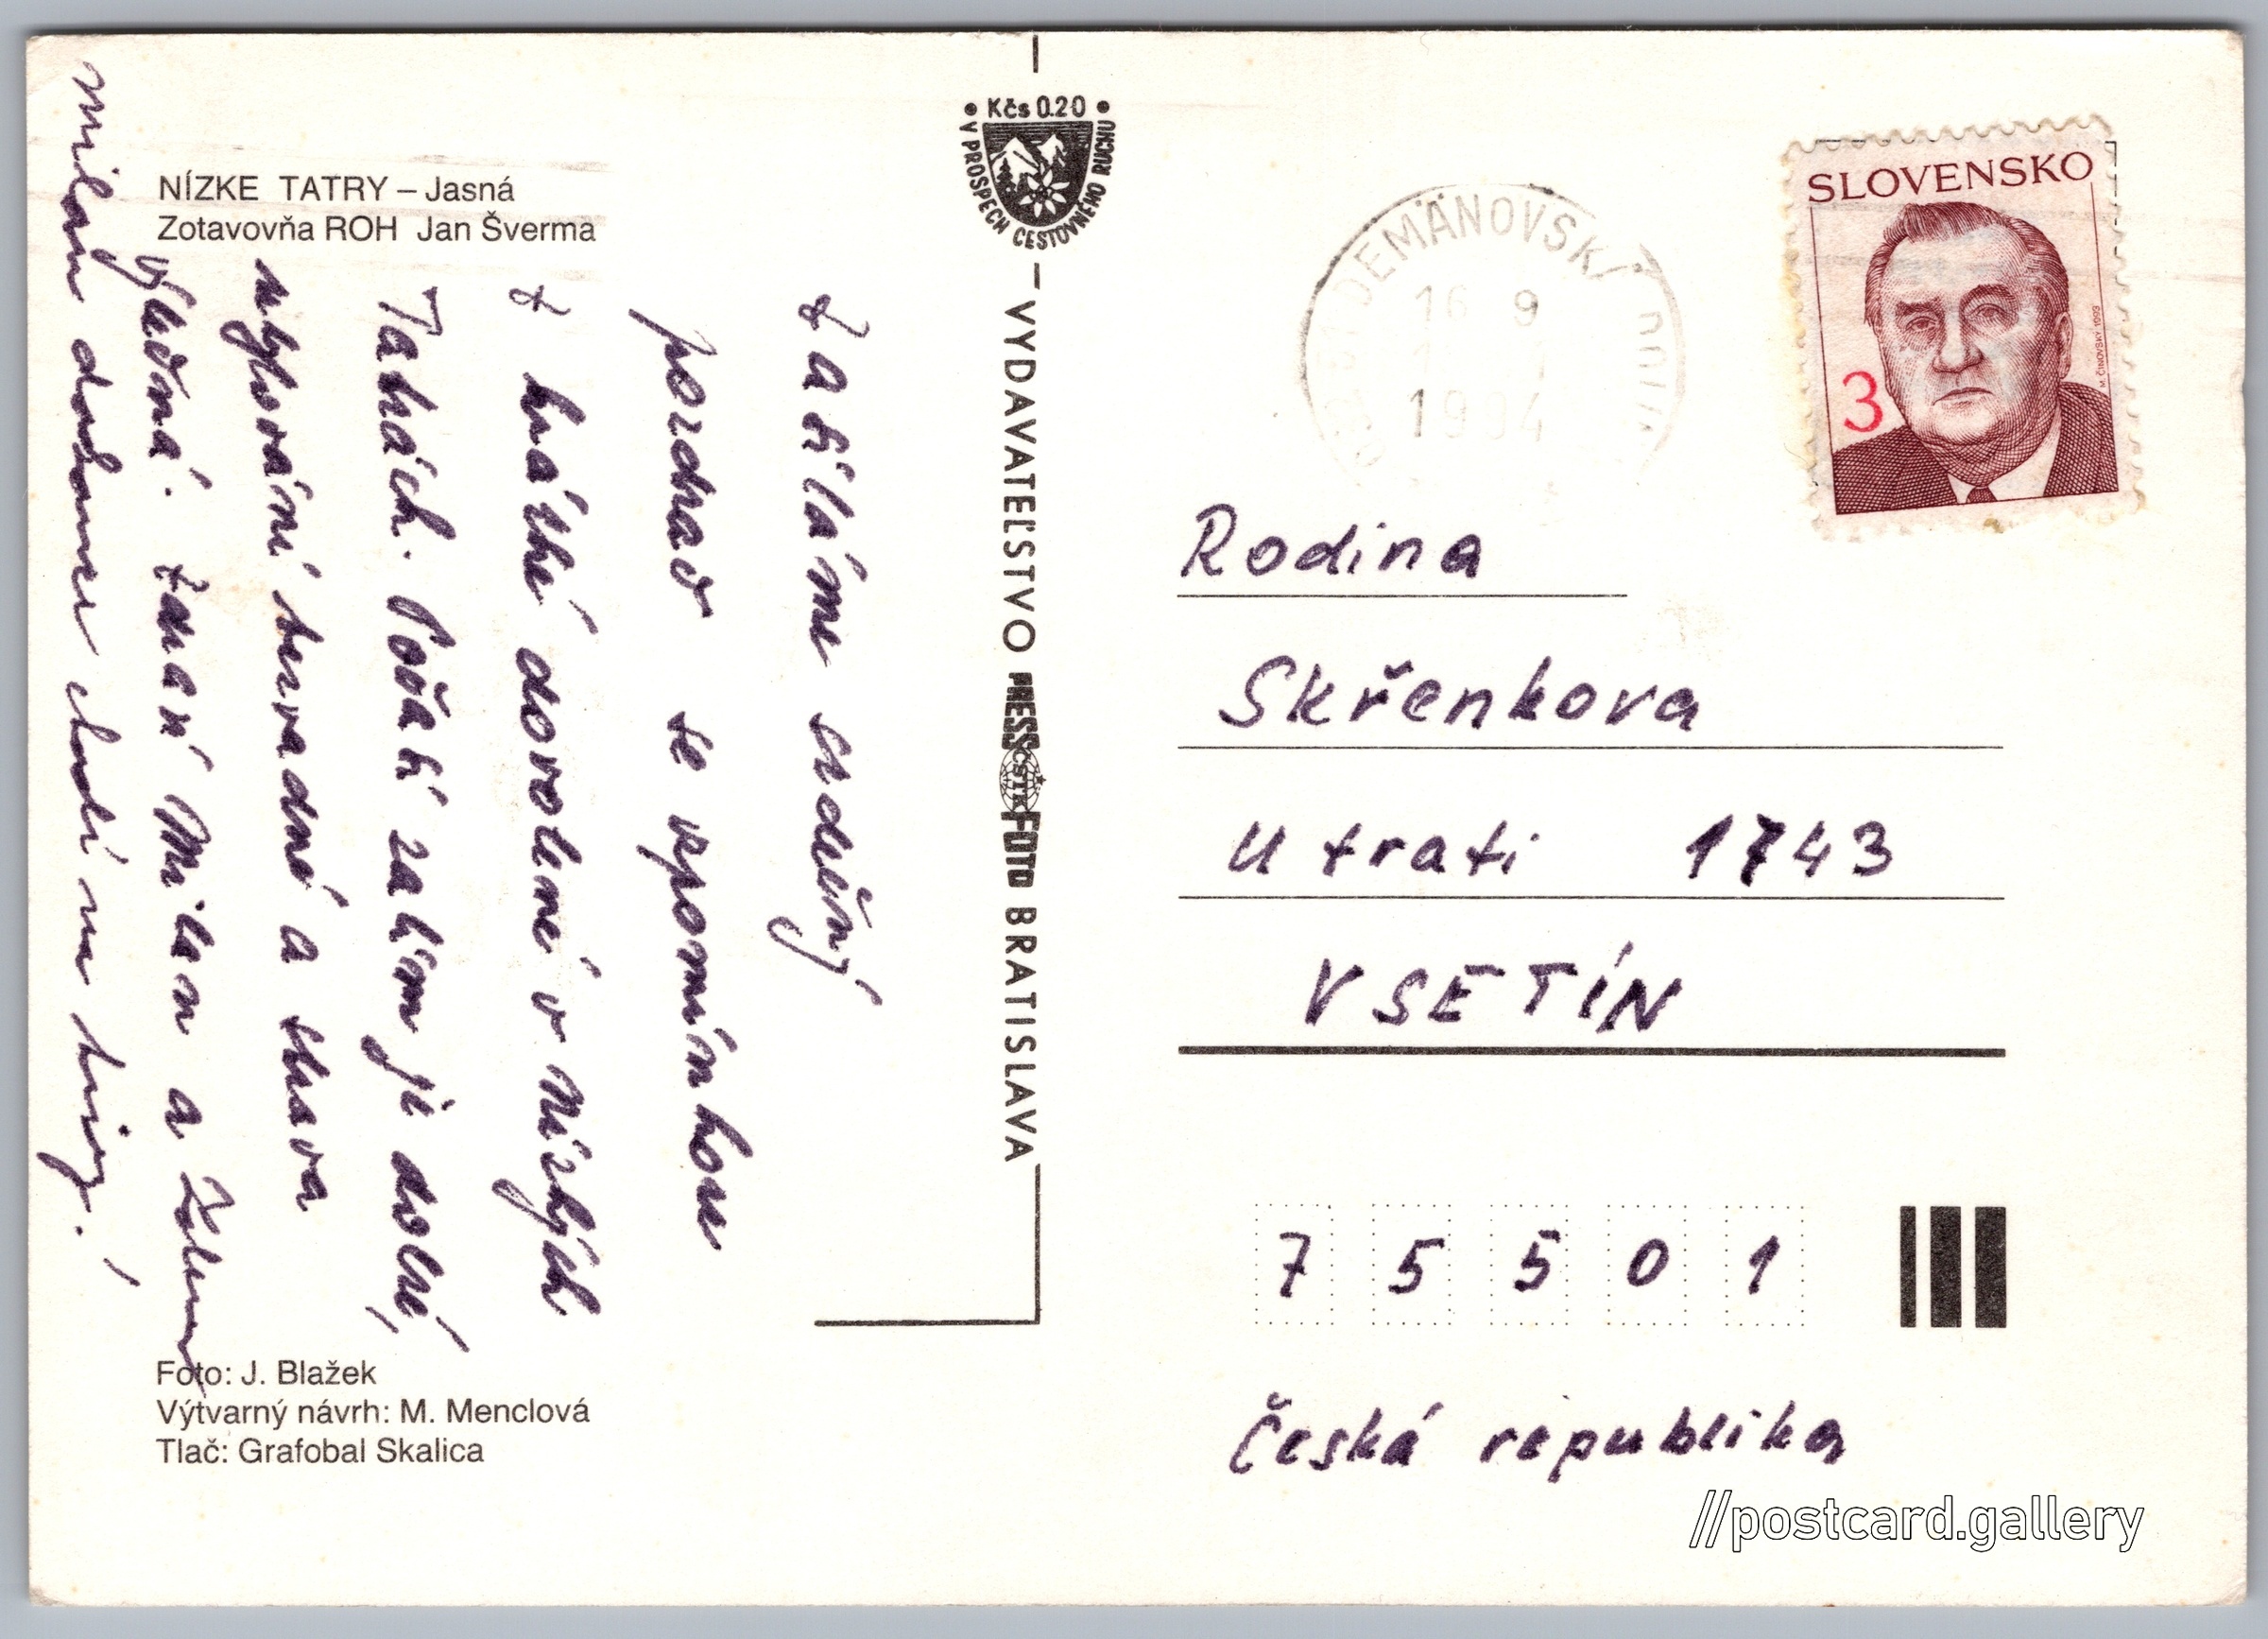 NÍZKE TATRY – Jasná
Zotavovňa ROH Jan Šverma
Zasíláme srdečný
pozdrav se vzpomínkou
z krátké dovolené v Nízkých
Tatrách. Počasí zatím je dobré,
ubytování bezvadné a strava
výtečná. Zdraví Milan a Zdena
Milan dodanu chodí na hřiby!
Foto: J. Blažek
Výtvarný návrh: M. Menclová
Tlač: Grafobal Skalica
• Kčs 0.20 •
V PROSPECH CESTOVNÉHO RUCHU
VYDAVATEĽSTVO PRESSFOTO BRATISLAVA
ČSTK
DEMÄNOVSKÁ DOLINA
16 9
1994
SLOVENSKO
3
M. ČINOVSKÝ 1993
Rodina
Skřenkova
U trati 1743
VSETÍN
7 5 5 0 1
Česká republika
//postcard.gallery